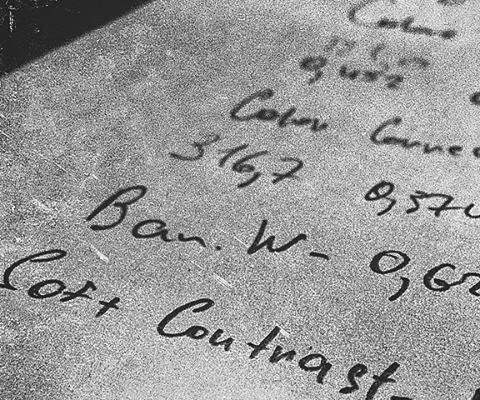 Color
0,452
Color Connec
316,7 0,57
Ban. W- 0,62
Soft Contrast-